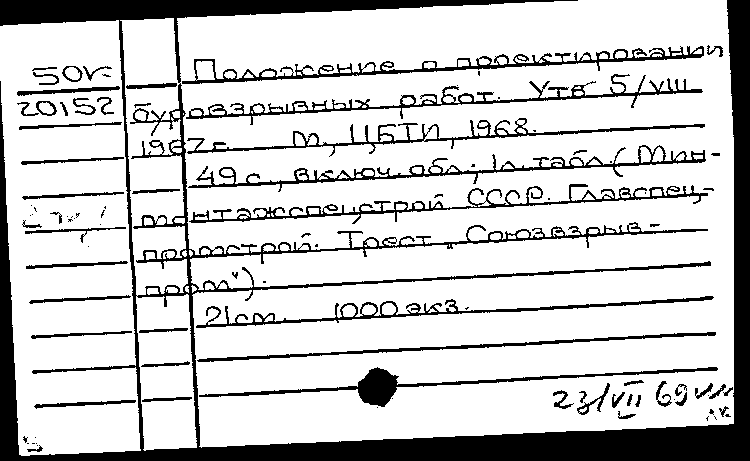 50к Положение о проектировании
20152 буровзрывных работ. Утв 5/VIII
1967г. М., ЦБТИ, 1968.
49с., включ. обл.; 1л. табл. (Мин-
монтажспецстрой СССР. Главспец-
промстрой. Трест „Союзвзрыв-
пром").
21см. 1000 экз.
23/VII 69